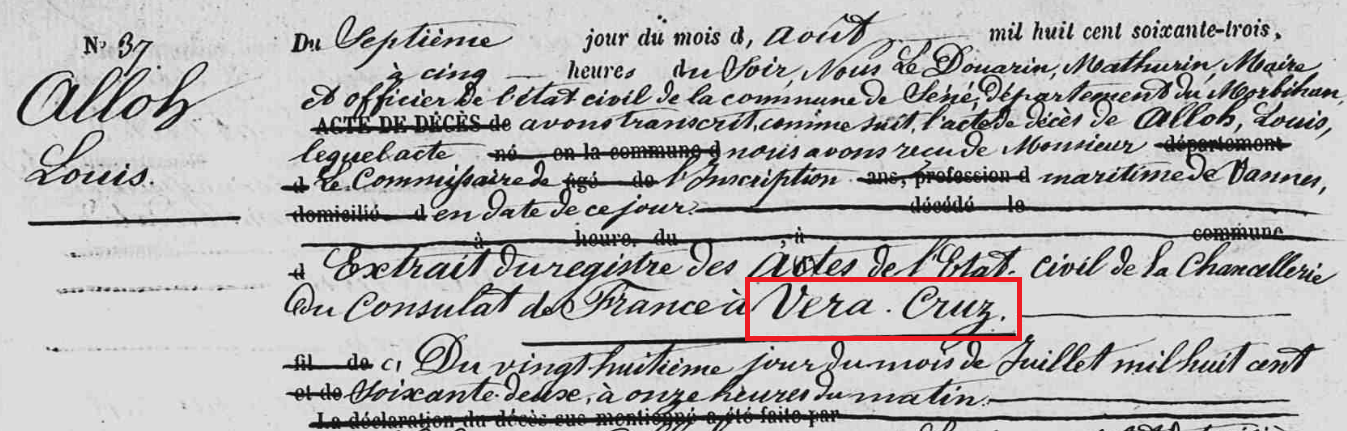 N° 37
Alloh
Louis.
Du Septième jour du mois d, Août mil huit cent soixante-trois,
à cinq heures du Soir, Nous Le Douarin, Mathurin, Maire
et officier de l'état civil de la commune de Séné, département du Morbihan,
ACTE DE DÉCÈS de avons transcrit, comme suit, l'acte de décès de Alloh, Louis,
lequel acte, né en la commune d nous avons reçu de Monsieur département
d Le Commissaire de âgé de l'Inscription ans, profession d maritime de Vannes,
domicilié d en date de ce jour. décédé le
à heure, du , à commune
d Extrait du registre des Actes de l'Etat. civil de la Chancellerie
du Consulat de France à Vera. Cruz.
fil de Du vingt huitième jour du mois de Juillet mil huit cent
et de soixante deux, à onze heures du matin.
La déclaration du décès sus mentionné a été faite par